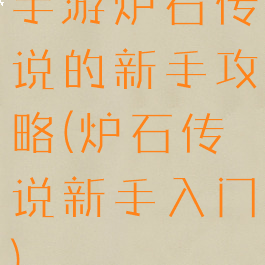 手游炉石传
说的新手攻
略(炉石传
说新手入门
)